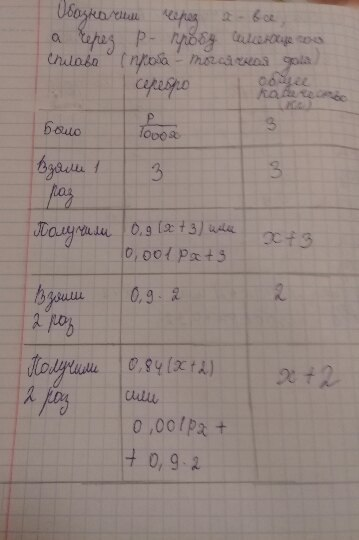 Обозначим через x - вес,
а через P - пробу имеющегося
сплава (проба - тысячная доля)
серебро
общее
количество
(кг)
Было
P/1000x
3
Взяли 1
раз
3
3
Получили
0,9(x+3) или
0,001Px+3
x+3
Взяли
2 раз
0,9·2
2
Получили
2 раз
0,84(x+2)
или
0,001Px+
+0,9·2
x+2